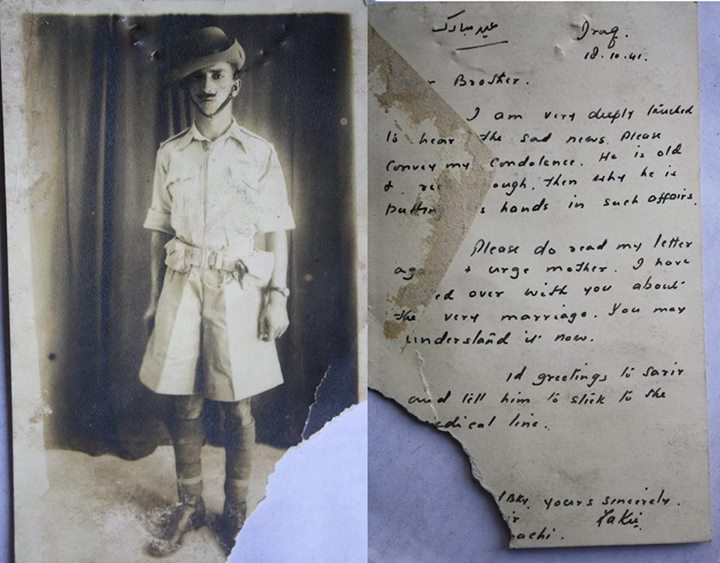 عید مبارک
Iraq.
18.10.41.
Brother.
I am very deeply touched
to hear the sad news. Please
convey my condolence. He is old
ough, then why he is
hands in such affairs.
Please do read my letter
& urge mother. I have
ed over with you about
the very marriage. You may
understand it now.
Id greetings to Sarir
and tell him to stick to the
edical line.
yours sincerely.
achi.